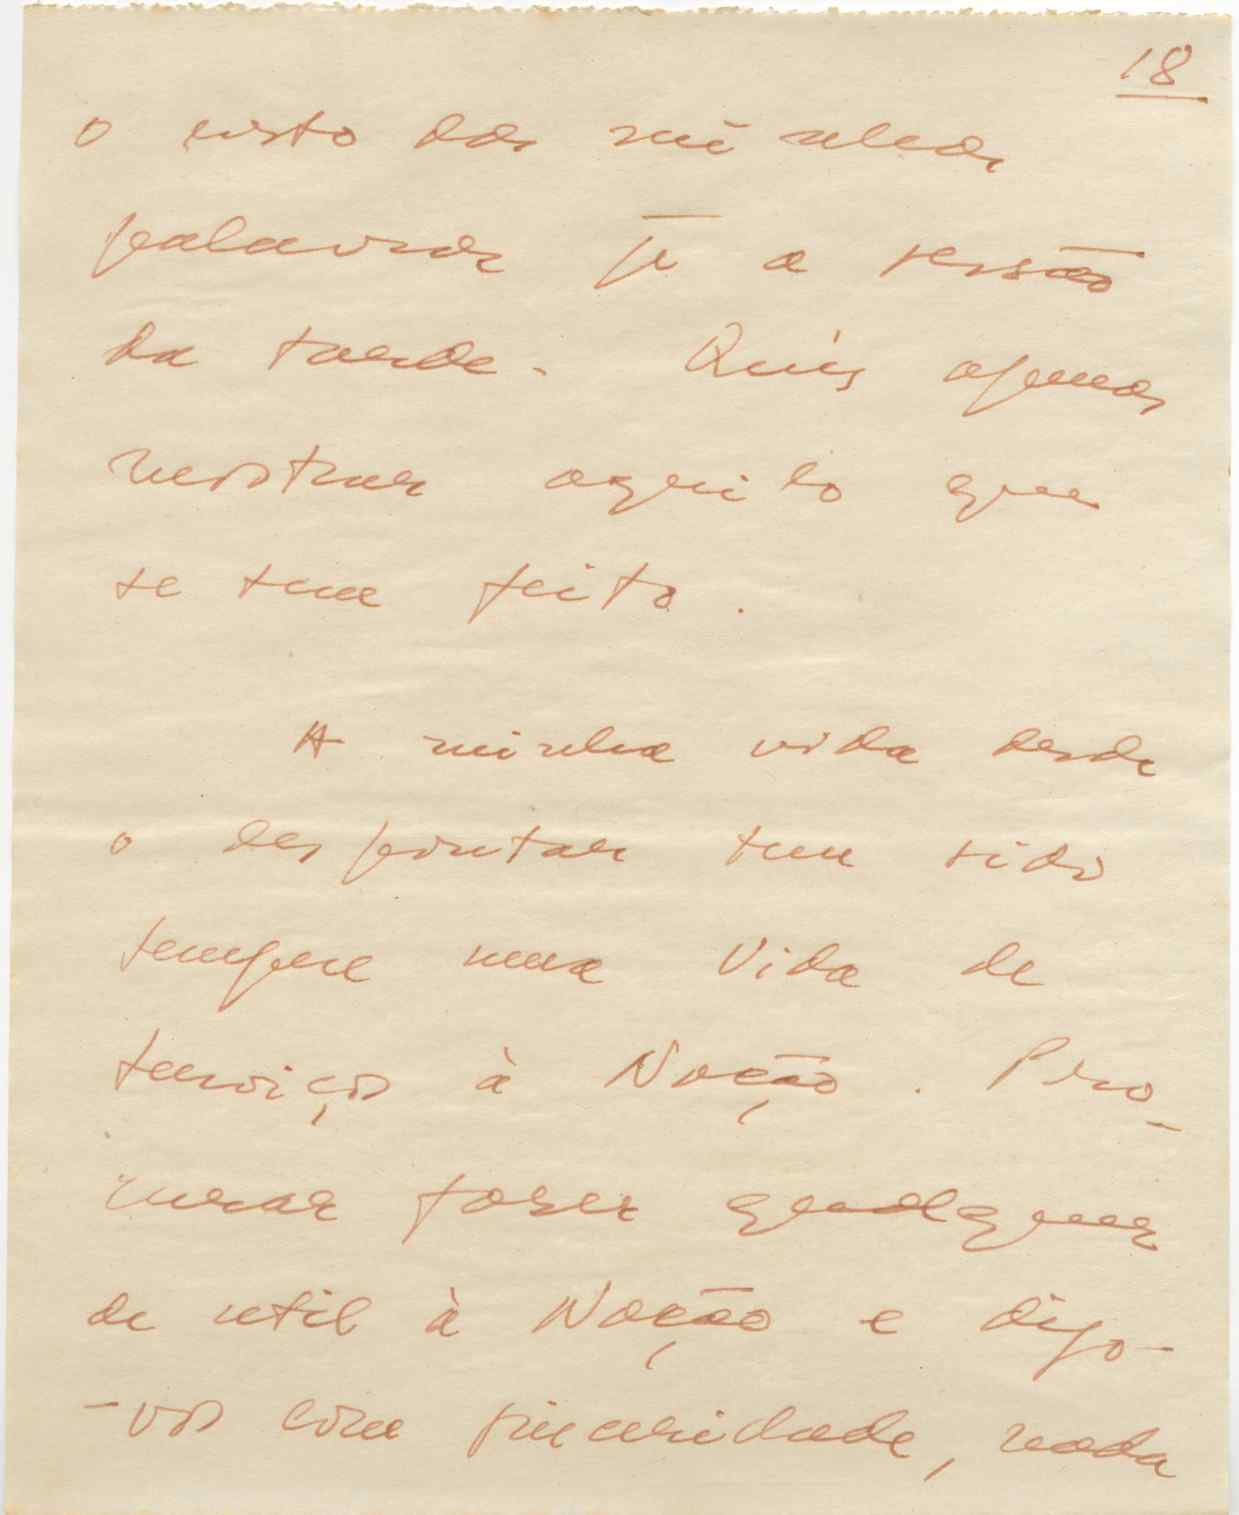 18
o resto das minhas
palavras p̄ a sessão
da tarde. Quis apenas
mostrar aquilo que
se tem feito.
A minha vida desde
o despontar tem sido
sempre uma vida de
serviço à Nação. Pro-
curar fazer qualquer
de util à Nação e digo-
-vos com sinceridade, nada